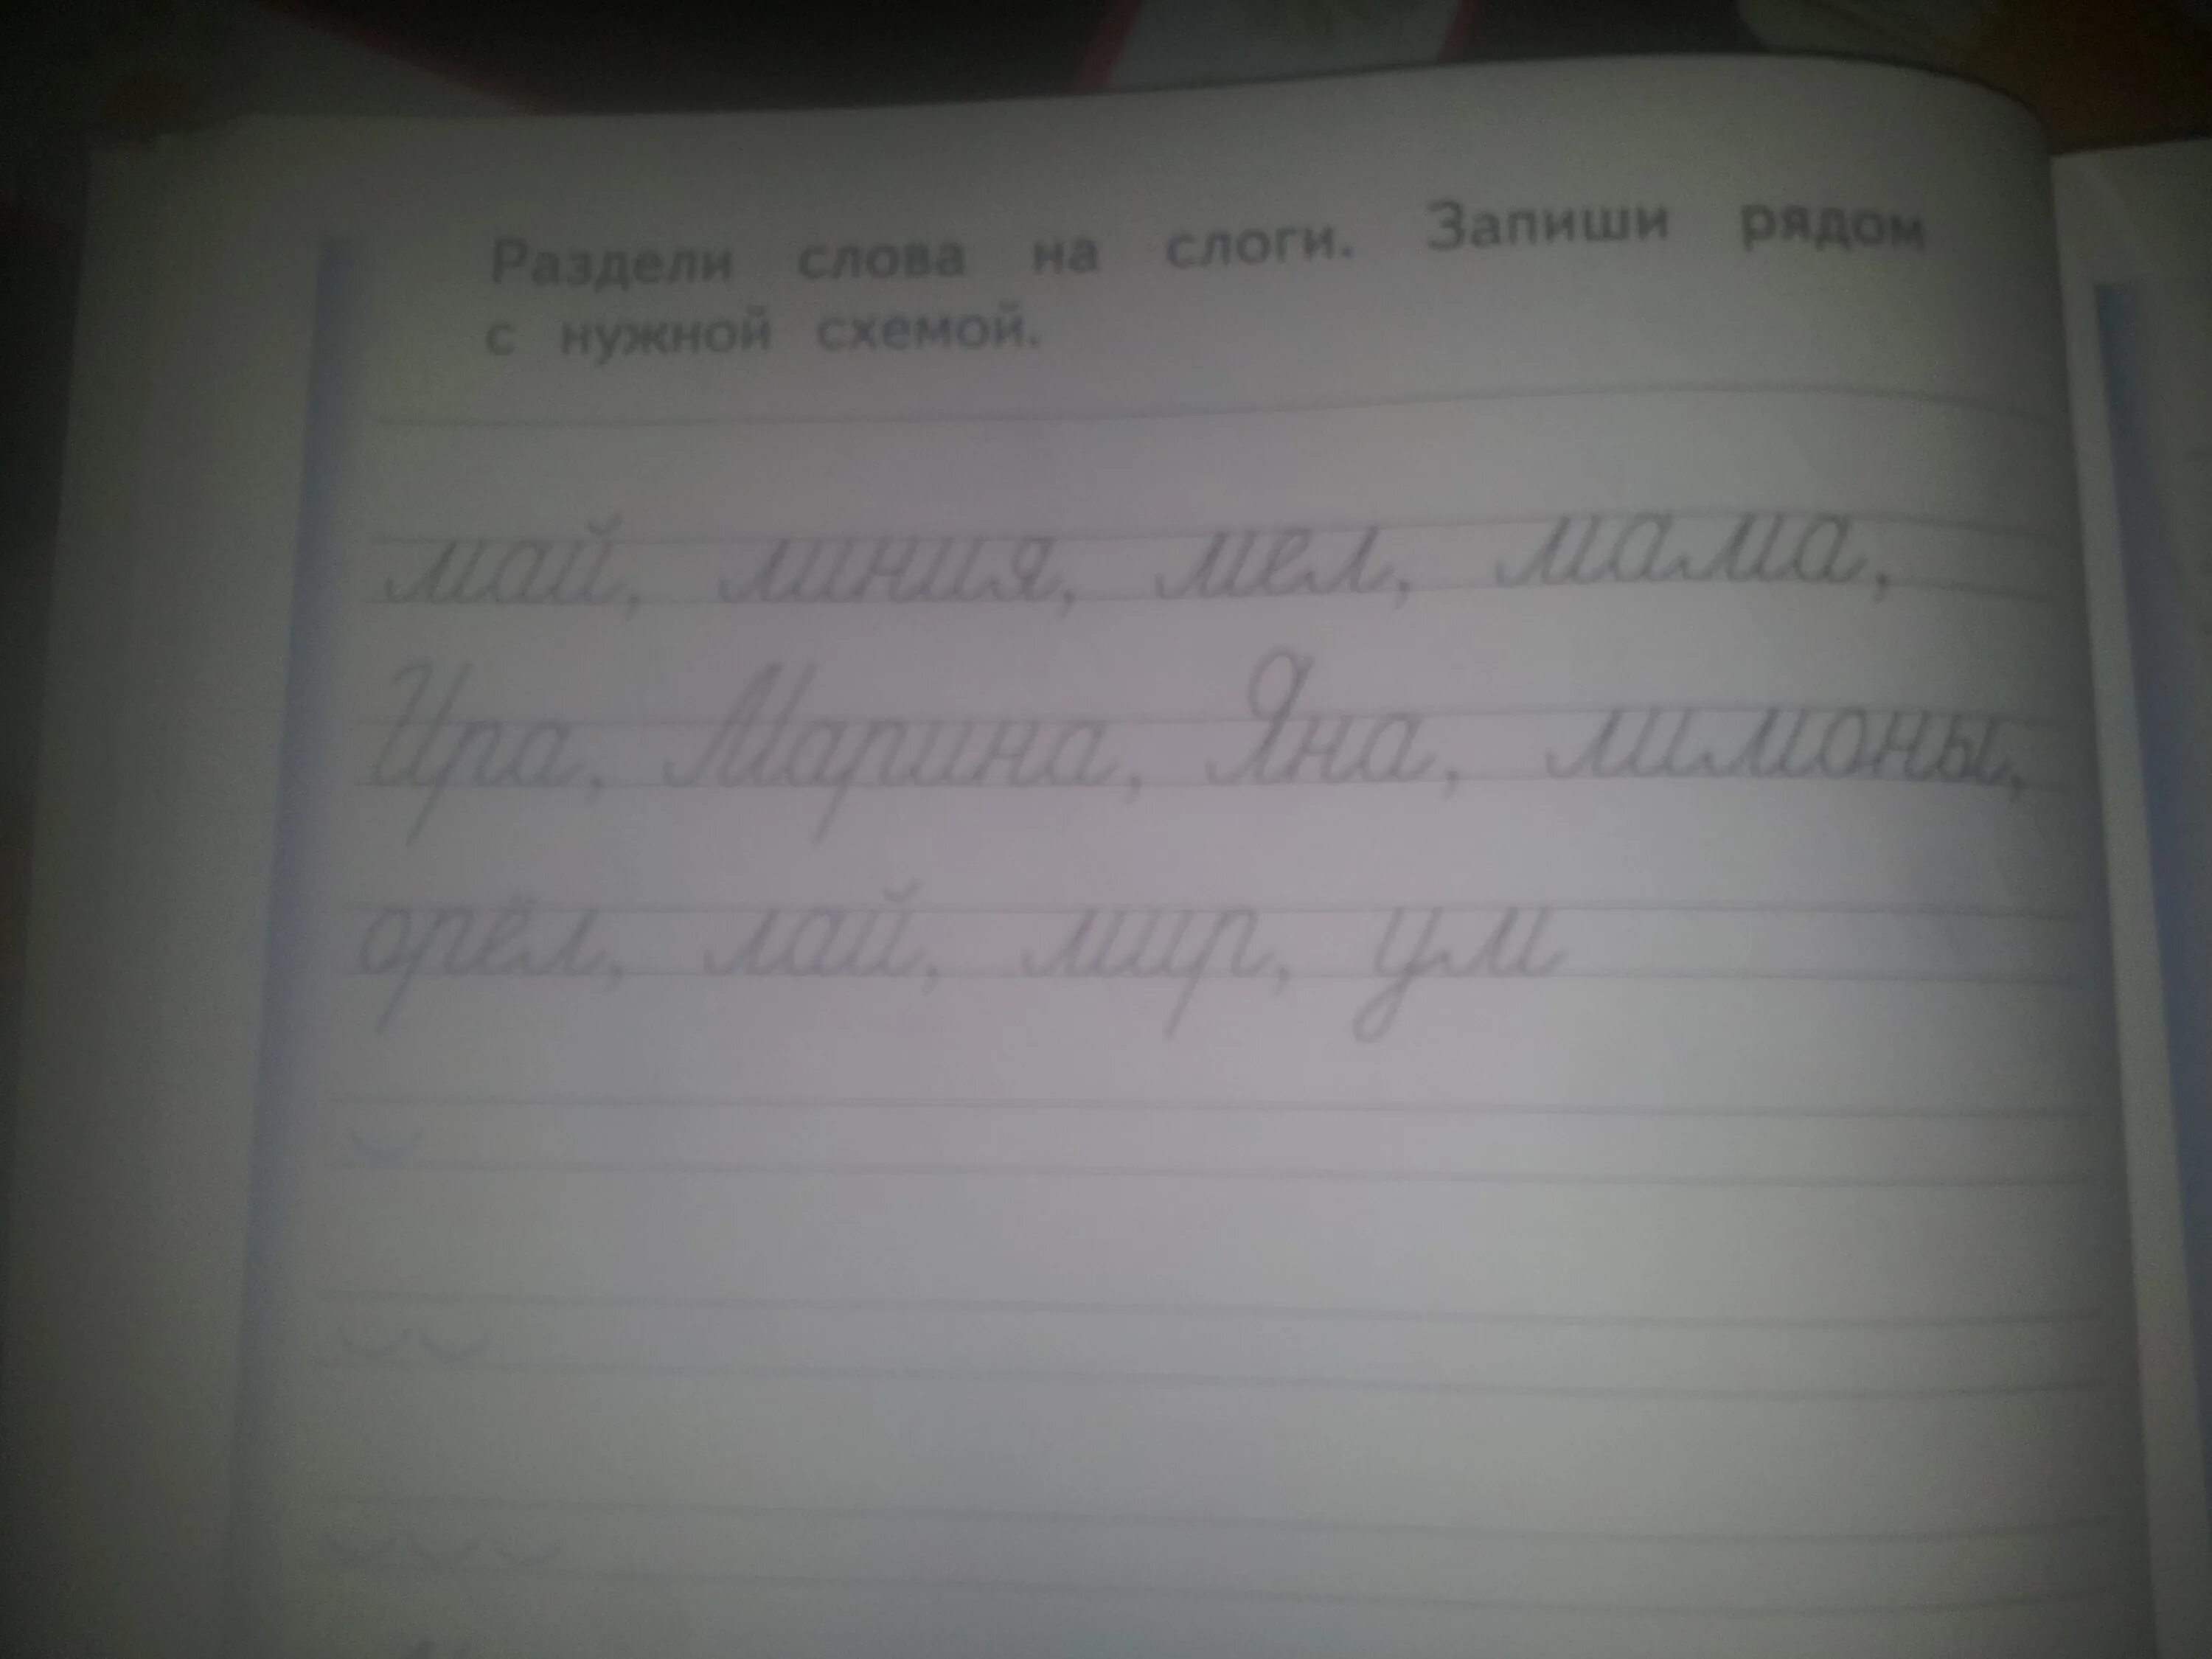 Раздели слова на слоги. Запиши рядом
с нужной схемой.
май, линия, мел, мама,
Ира, Марина, Яна, лимоны,
орёл, лай, мир, ум